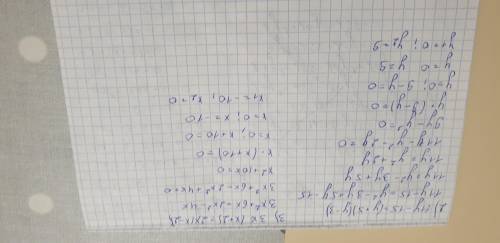 2) 11y-15=(y+5)(y-3)
11y-15=y²-3y+5y-15
11y=y²-3y+5y
11y=y²+2y
11y-y²-2y=0
9y-y²=0
y·(9-y)=0
y=0; 9-y=0
y=0 y=9
y₁=0; y₂=9
3) 3x(x+2)=2x(x-2)
3x²+6x=2x²-4x
3x²+6x-2x²+4x=0
x²+10x=0
x·(x+10)=0
x=0; x+10=0
x=0; x=-10
x₁=-10; x₂=0